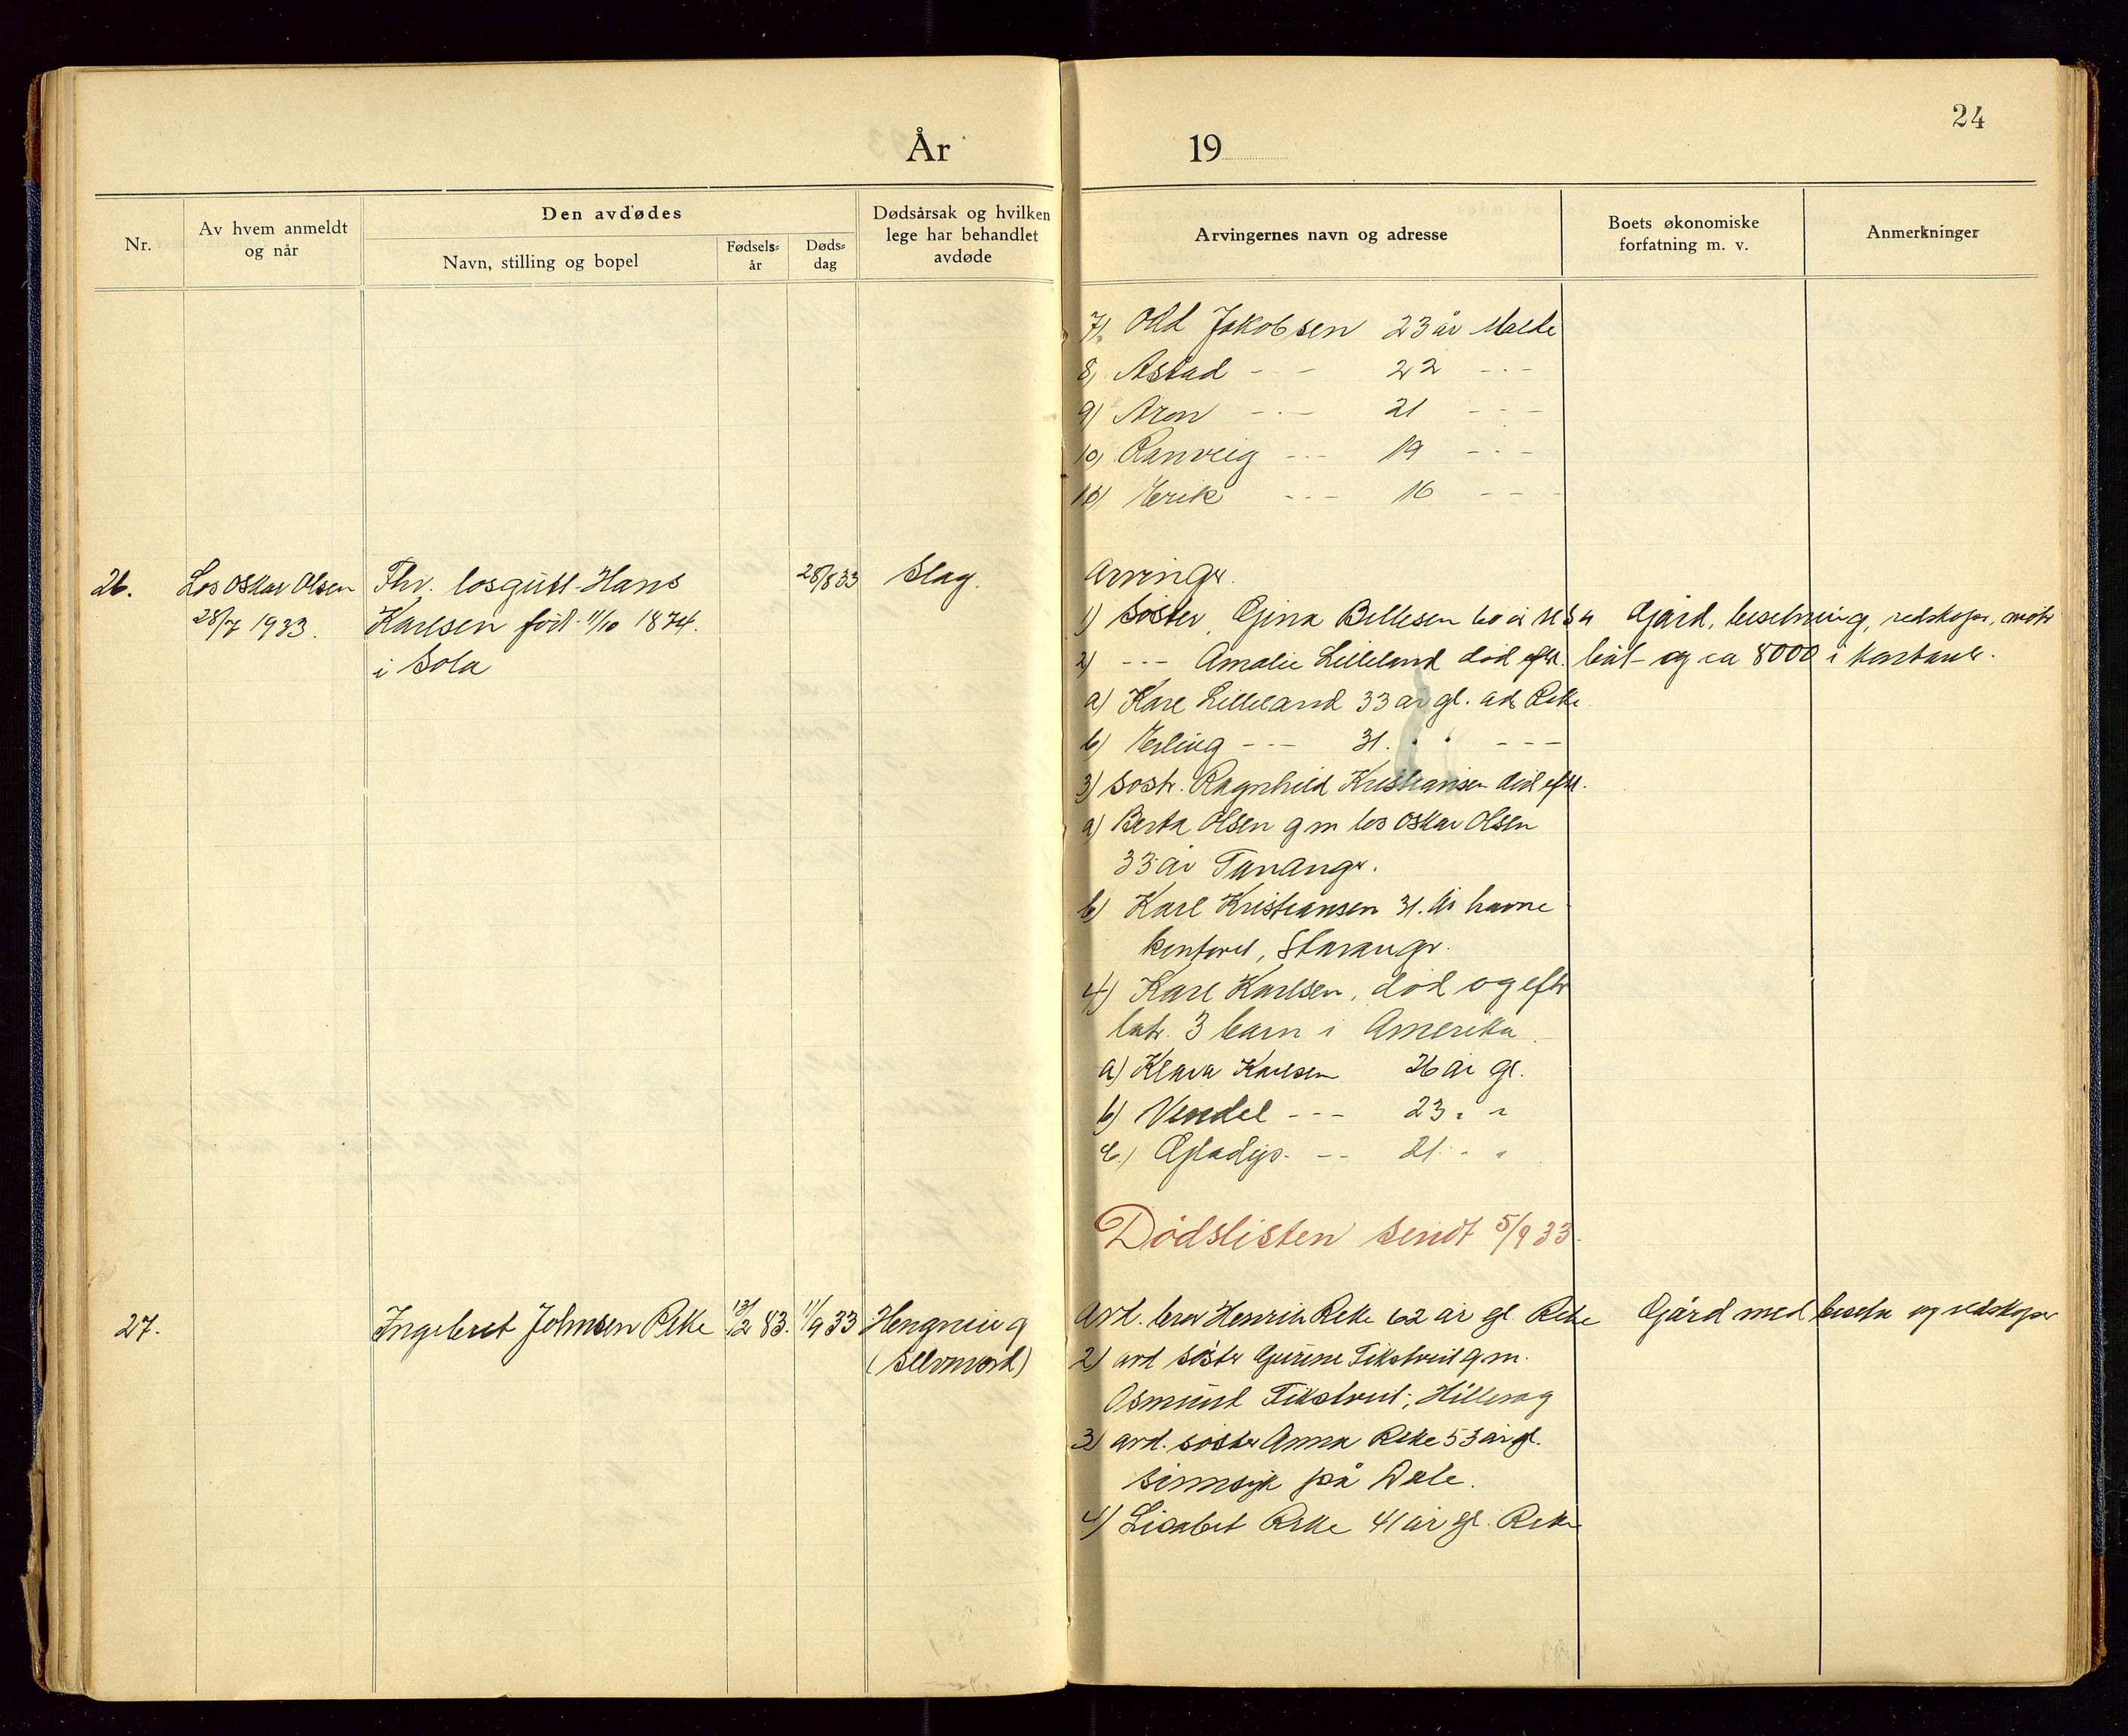 24
År 19
Nr.
Av hvem anmeldt
og når
Den avdødes
Navn, stilling og bopel
Fødsels-
år
Døds-
dag
Dødsårsak og hvilken
lege har behandlet
avdøde
Arvingernes navn og adresse
Boets økonomiske
forfatning m. v.
Anmerkninger
7) Odd Jakobsen 23 år Malde
8) Astad - - 22 - - -
9) Aron - - - 21 - - -
10) Ranveig - - - 19 - - -
Erik - - - 16 - -
26. Los Oskar Olsen
28/7 1933.
Fhv. losgutt Hans
Karlsen född 11/10 1874.
i Sola
28/8 33
Slag.
Arvinger.
1) Søster, Gina Bellesen 60 år USA
2) - - - Amalie Lilleland död eftl.
a) Kare Lilleland 33 år gl. ads Reke
b) Erling - - - 31. - - -
3) søst. Ragnhild Kristiansen död eftl.
a) Berta Olsen g m los Oskar Olsen
33 år Tananger.
b) Karl Kristiansen 31. år havne
kontoret, Stavanger.
4) Karl Karlsen, död og efter
latr. 3 barn i Amerika
a) Klara Karlsen 26 år gl.
b) Vendel - - - 23 " "
c.) Gladys. - - 21 " "
Gård, besetning, redskaper, motor
båt og ca 8000 i kontanter.
Dödslisten sendt 5/9 33.
27.
Ingebret Johnsen Reke
13/2 83. 11/9 33
Hengning
(Selvmord)
Avd. bror Henrik Reke 62 år gl Reke
2) avd søster Gurine Tikstveit g.m.
Osmund Tikstveit, Hillevåg
3) avd. søster Anna Reke 53 år gl.
sinnsyk på Dale.
4) Lisabet Reke 41 år gl. Reke
Gård med besetn og redskaper